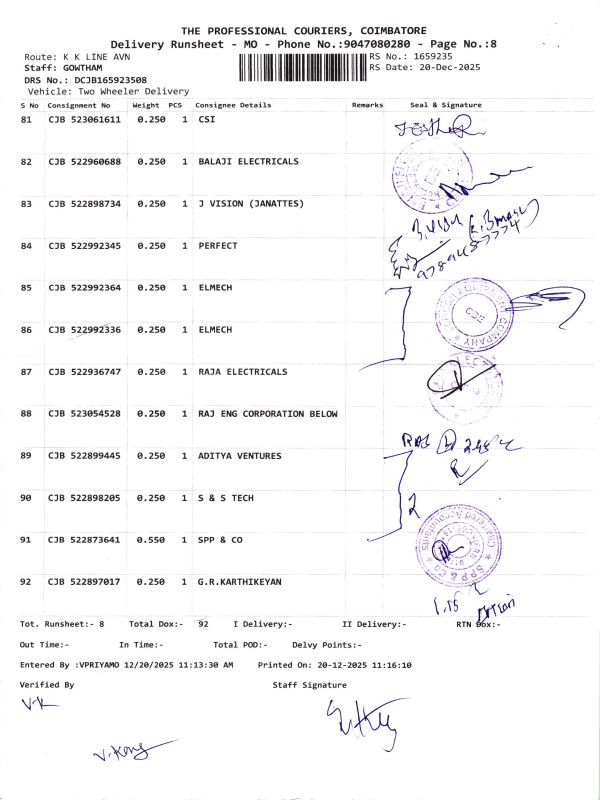 THE PROFESSIONAL COURIERS, COIMBATORE
Delivery Runsheet - MO - Phone No.:9047080280 - Page No.:8
Route: K K LINE AVN RS No.: 1659235
Staff: GOWTHAM RS Date: 20-Dec-2025
DRS No.: DCJB165923508
Vehicle: Two Wheeler Delivery
S No Consignment No Weight PCS Consignee Details Remarks Seal & Signature
81 CJB 523061611 0.250 1 CSI
82 CJB 522960688 0.250 1 BALAJI ELECTRICALS
83 CJB 522898734 0.250 1 J VISION (JANATTES)
84 CJB 522992345 0.250 1 PERFECT
85 CJB 522992364 0.250 1 ELMECH
CBE
86 CJB 522992336 0.250 1 ELMECH
87 CJB 522936747 0.250 1 RAJA ELECTRICALS
88 CJB 523054528 0.250 1 RAJ ENG CORPORATION BELOW
89 CJB 522899445 0.250 1 ADITYA VENTURES
90 CJB 522898205 0.250 1 S & S TECH
2
91 CJB 522873641 0.550 1 SPP & CO
Chartered Accountants
SPP & CO
92 CJB 522897017 0.250 1 G.R.KARTHIKEYAN
1.15
Tot. Runsheet:- 8 Total Dox:- 92 I Delivery:- II Delivery:- RTN Dox:-
Out Time:- In Time:- Total POD:- Delvy Points:-
Entered By :VPRIYAMO 12/20/2025 11:13:30 AM Printed On: 20-12-2025 11:16:10
Verified By Staff Signature
V.K